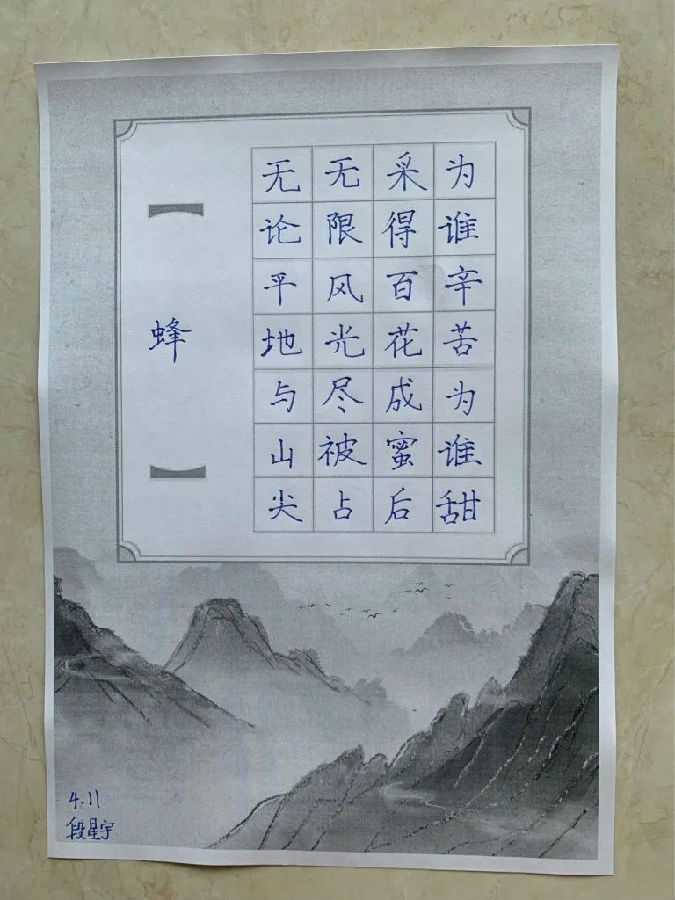 蜂
无论平地与山尖
无限风光尽被占
采得百花成蜜后
为谁辛苦为谁甜
4.11
段星宇